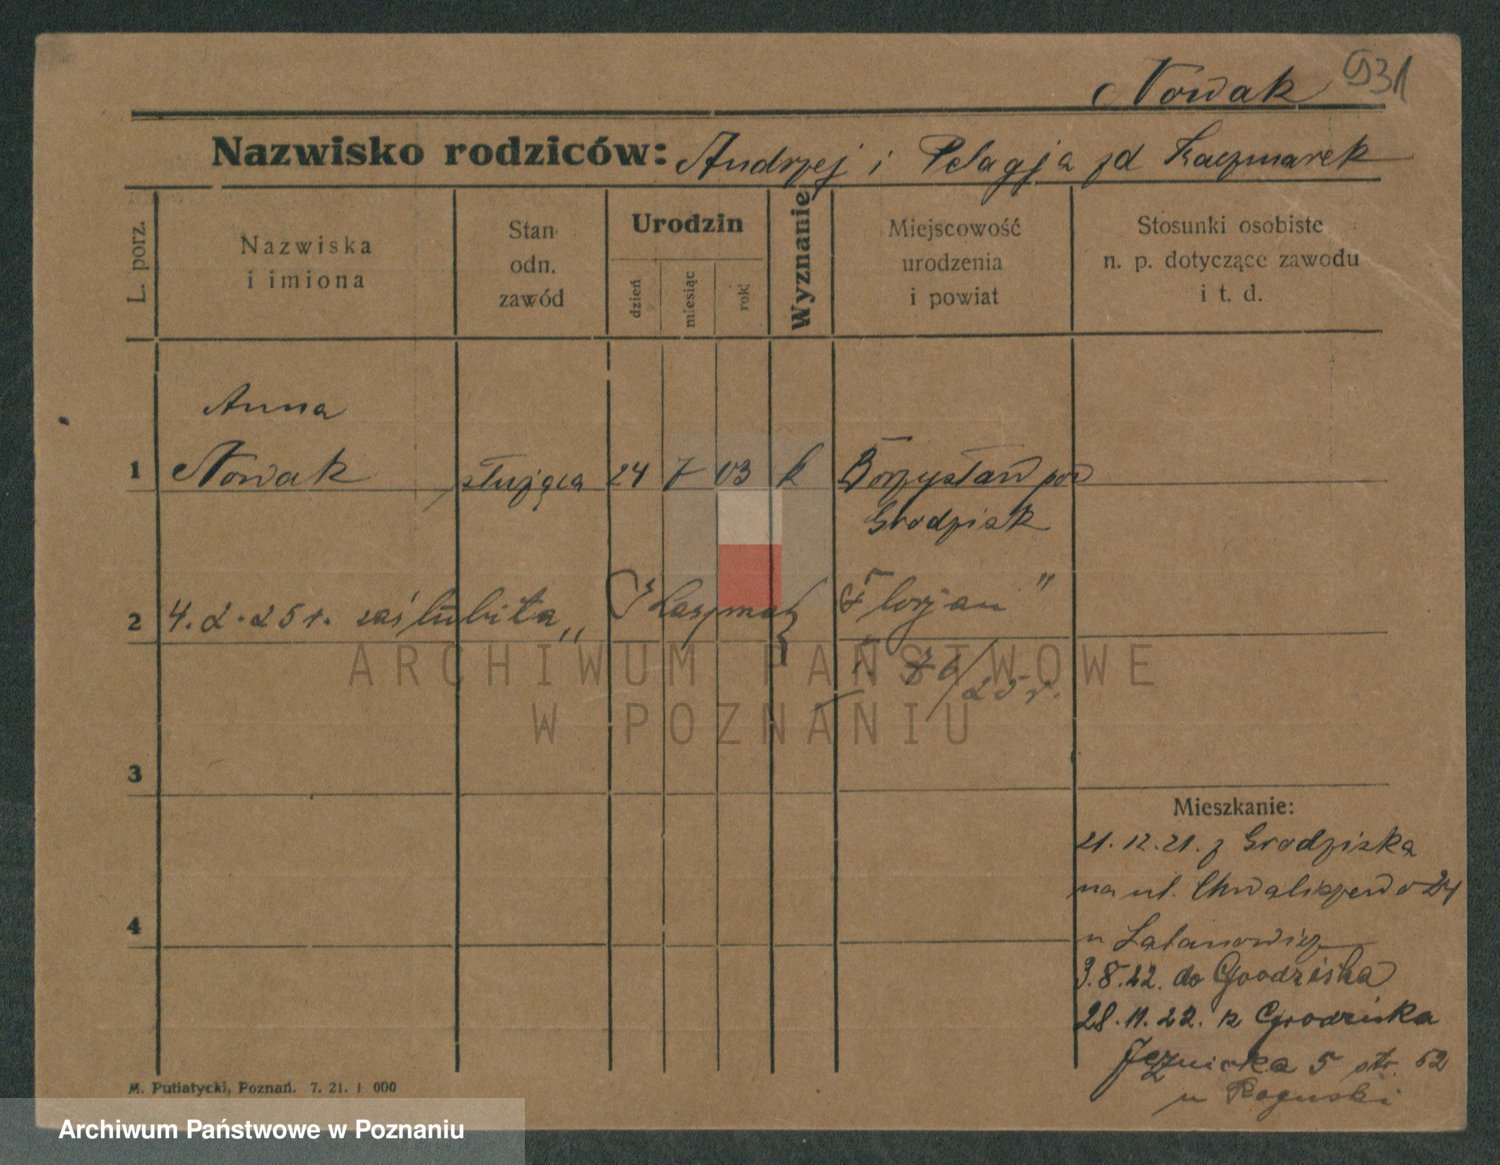 Nowak 931
Nazwisko rodziców: Andrzej i Pelagja zd Kaczmarek
L. porz.
Nazwiska
i imiona
Stan
odn.
zawód
Urodzin
dzień
miesiąc
rok
Wyznanie
Miejscowość
urodzenia
i powiat
Stosunki osobiste
n. p. dotyczące zawodu
i t. d.
Anna
1 Nowak służąca 24 7 03 k Borzysław pow
Grodzisk
2 4.2.25 r. zaślubiła „ Florjan "
76/25 r.
ARCHIWUM PAŃSTWOWE
W POZNANIU
3
Mieszkanie:
21.12.21. z Grodziska
na ul. Chwaliszewo 24
4
u Latanowicz
3.8.22. do Grodziska
28.11.22. z Grodziska
5 str. 52
u Roguski
M. Putiatycki, Poznań. 7. 21. 1 000
Archiwum Państwowe w Poznaniu